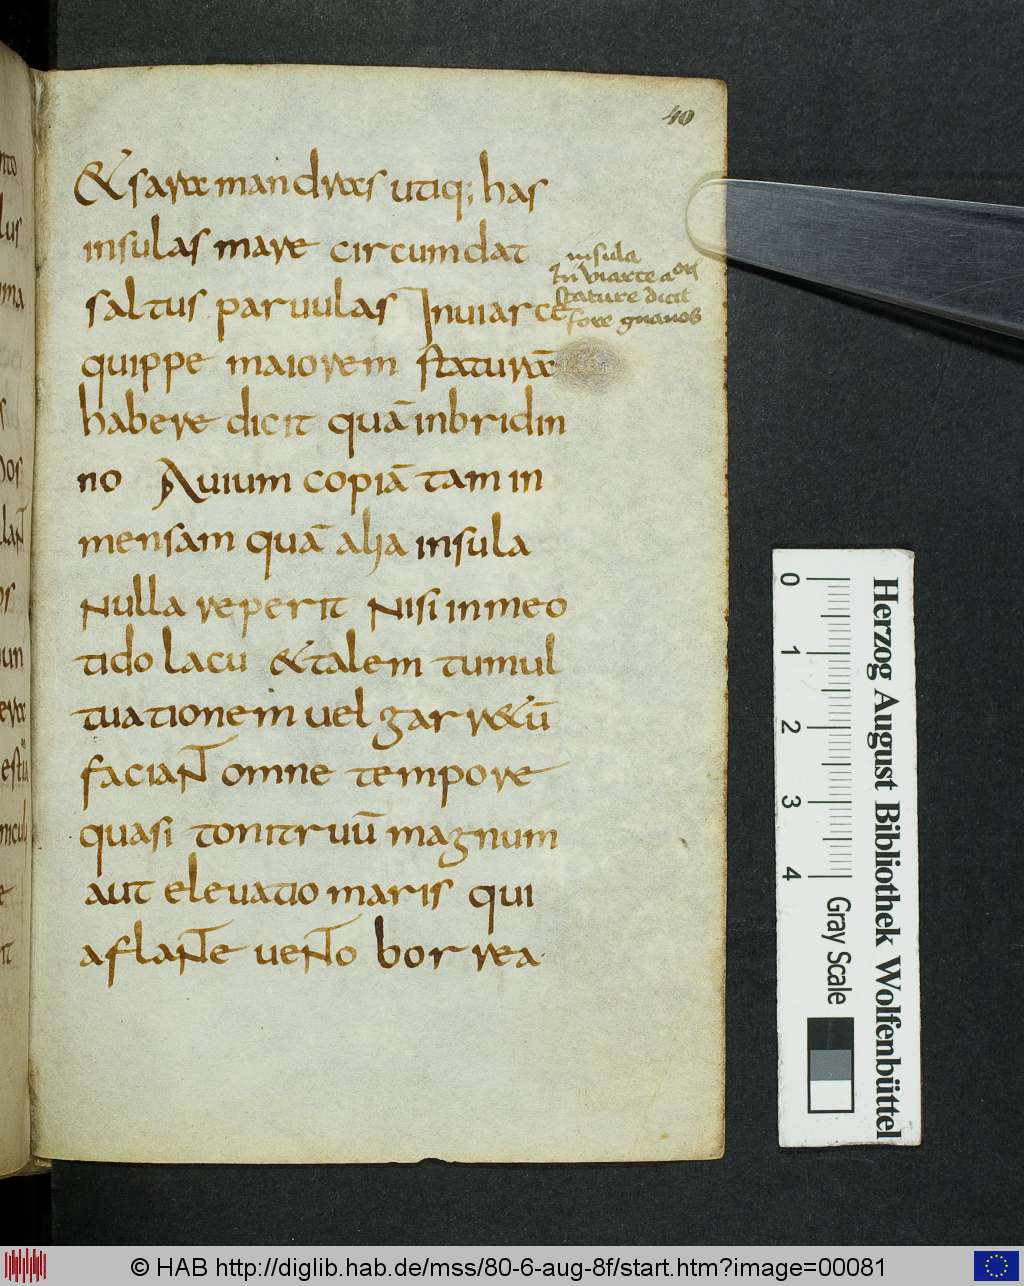 40
& sarræ mandras utiq; has
insulas mare circumdat
insula
saltus paruulas Inuiarce
In Viarce
stature dicit
fore gnanos
quippe maiorem staturā
habere dicit quā inbridin
no Auium copiā tam in
mensam quā alia insula
Nulla reperit Nisi inmeo
tido lacu & talem tumul
tuationem uel garr&ū
faciaNT omne tempore
quasi tonitruū magnum
aut eleuatio maris qui
aflaNTe ueNTo borrea
Herzog August Bibliothek Wolfenbüttel
0 1 2 3 4 Gray Scale
© HAB http://diglib.hab.de/mss/80-6-aug-8f/start.htm?image=00081